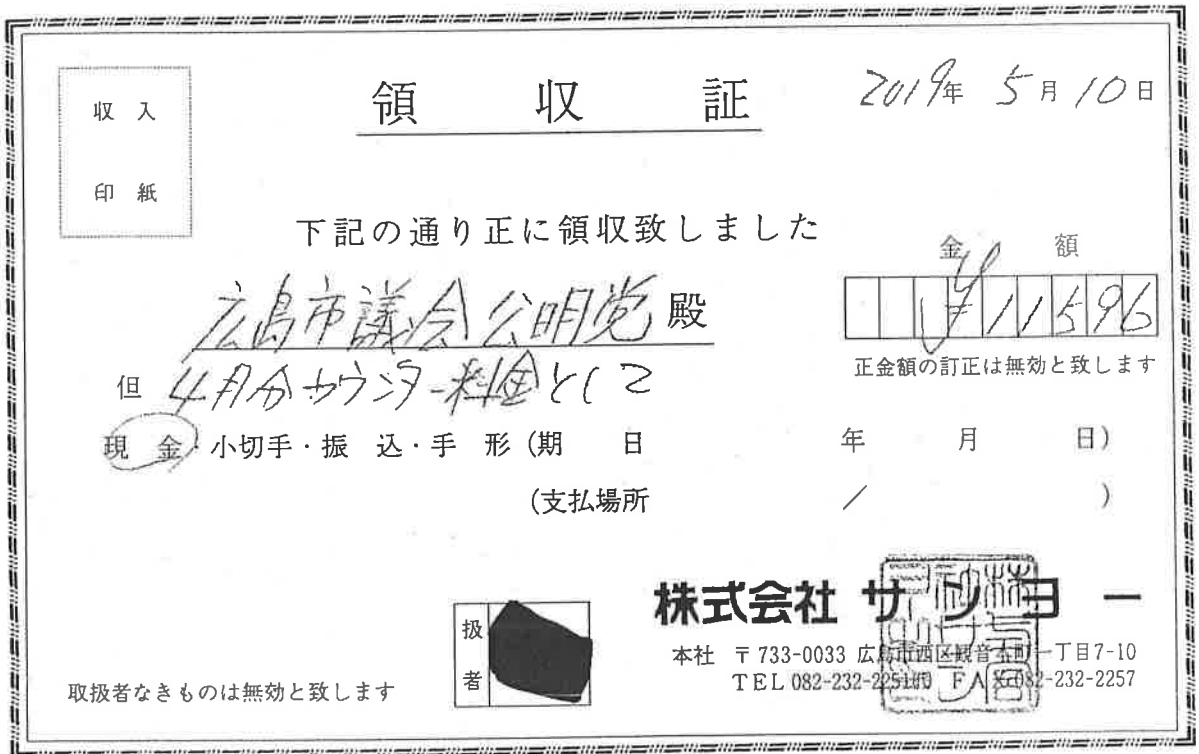 収入
印紙
領収証
2019年 5月10日
下記の通り正に領収致しました
金額
広島市議会公明党 殿
¥11596
正金額の訂正は無効と致します
但 4月分カウンター料金として
現金・小切手・振込・手形(期日 年 月 日)
(支払場所 / )
株式会社サンヨー
扱者
本社 〒733-0033 広島市西区観音本町一丁目7-10
TEL 082-232-2251㈹ FAX 082-232-2257
取扱者なきものは無効と致します